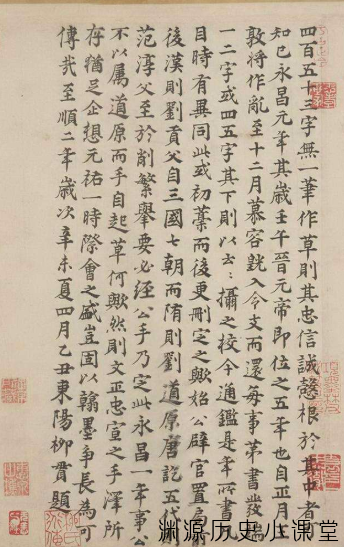 四百五十三字無一筆作草則其忠信誠慤根於其中者可
知已永昌元年其歲壬午晉元帝即位之五年也自正月王
敦將作亂至十二月慕容皝入令支而還每事第書發端
一二字或四五字其下則以云〻攝之校今通鑑是年所書凡
目時有異同此或初藁而後更刪定之歟始公辟官置局前
後漢則劉貢父自三國七朝而隋則劉道原唐訖五代則
范淳父至於削繁舉要必經公手乃定此永昌一年事公
不以屬道原而手自起草何歟然則文正忠宣之手澤所
存猶足企想元祐一時際會之盛豈固以翰墨爭長為可
傳哉至順二年歲次辛未夏四月乙丑東陽柳貫題
渊源历史小课堂